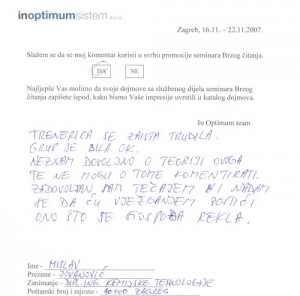 inoptimumsistem d.o.o.
Zagreb, 16.11. – 22.11.2007.
Slažem se da se moj komentar koristi u svrhu promocije seminara Brzog čitanja.
DA NE
Najljepše Vas molimo da svoje dojmove sa službenog dijela seminara Brzog
čitanja zapišete ispod, kako bismo Vaše impresije uvrstili u katalog dojmova.
In Optimum team
TRENERICA SE ZAISTA TRUDILA.
GRUPA JE BILA OK.
NEZNAM DOVOLJNO O TEORIJI OVOGA
TE NE MOGU O TOME KOMENTIRATI.
ZADOVOLJAN SAM TEČAJEM I NADAM
SE DA ĆU VJEŽBANJEM POSTIĆI
ONO ŠTO JE GOSPOĐA REKLA.
Ime – MISLAV
Prezime – JOVANOVIĆ
Zanimanje – DIPL. ING. KEMIJSKE TEHNOLOGIJE
Poštanski broj i mjesto – 10000 ZAGREB